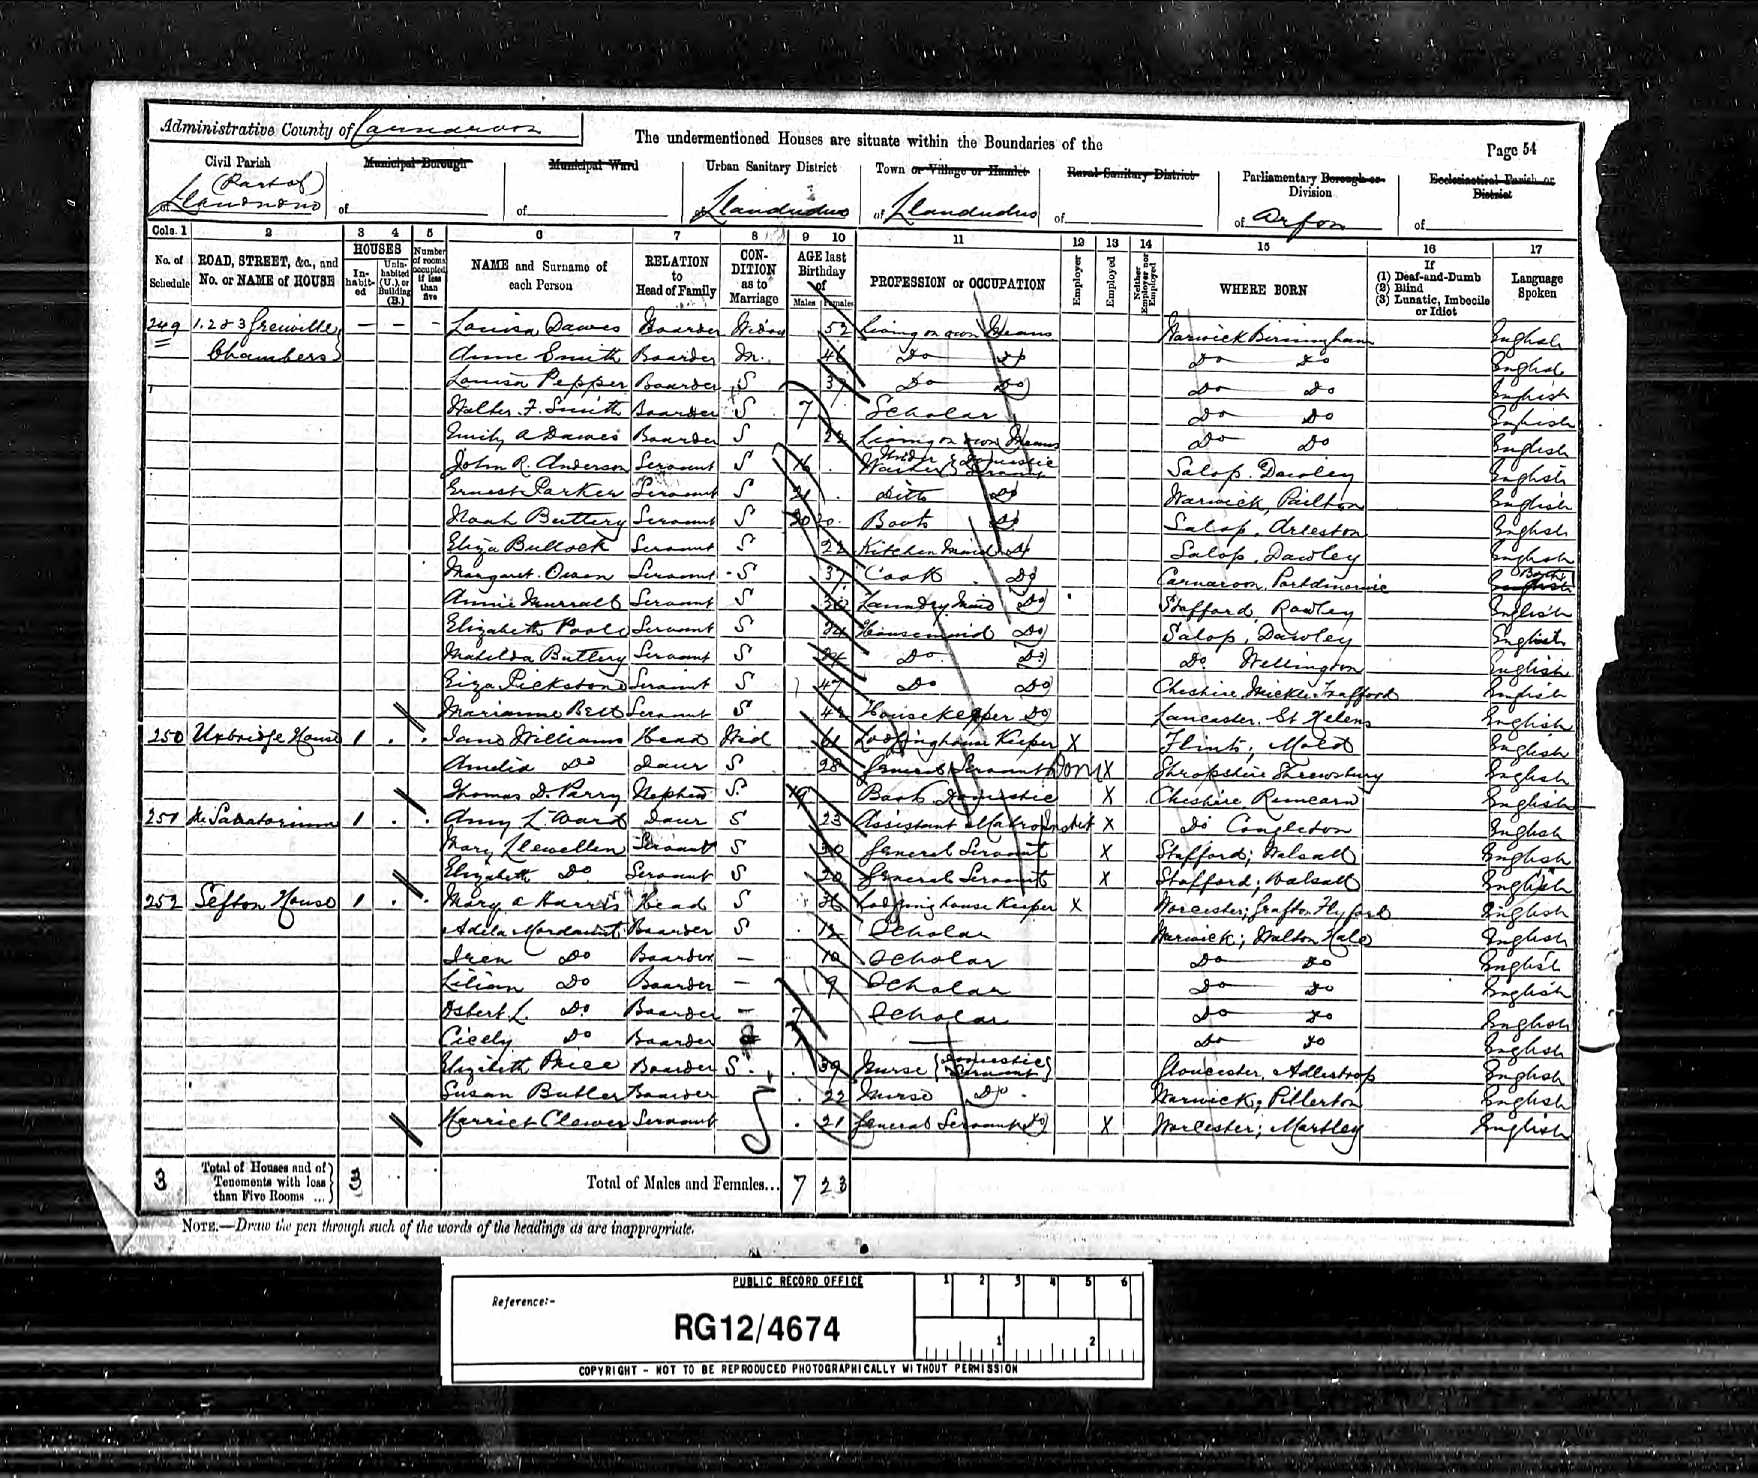 Administrative County of Carnarvon
The undermentioned Houses are situate within the Boundaries of the
Page 54
Civil Parish
(Part of)
Llandudno
Municipal Borough
of
Municipal Ward
of
Urban Sanitary District
of Llandudno
Town or Village or Hamlet
of Llandudno
Rural Sanitary District
of
Parliamentary Borough or Division
of Arfon
Ecclesiastical Parish or District
of
Cols. 1 2 3 4 5 6 7 8 9 10 11 12 13 14 15 16 17
No. of Schedule
ROAD, STREET, &c., and No. or NAME of HOUSE
HOUSES
In-habit-ed
Unin-habited (U.), or Building (B.)
Number of rooms occupied if less than five
NAME and Surname of each Person
RELATION to Head of Family
CON-DITION as to Marriage
AGE last Birthday of
Males Females
PROFESSION or OCCUPATION
Employer
Employed
Neither Employer nor Employed
WHERE BORN
If
(1) Deaf-and-Dumb
(2) Blind
(3) Lunatic, Imbecile or Idiot
Language Spoken
249 1. 2 & 3 Grenville — — - Louisa Dawes Boarder Widow 52 Living on own Means Warwick Birmingham English
Chambers Annie Smith Boarder M. 46 Do Do Do Do English
Louisa Pepper Boarder S 37 Do Do Do Do English
Walter. F. Smith Boarder S 7 Scholar Do Do English
Emily A Dawes Boarder S 22 Living on own Means Do Do English
John R. Anderson Servant S 16 Under Waiter Domestic Servant Salop. Dawley English
Ernest Parker Servant S 21 ditto Do Warwick, Pailton English
Noah Buttery Servant S 20 Boots Do Salop. Arleston English
Eliza Bullock Servant S 22 Kitchen Maid Do Salop, Dawley English
Margaret. Owen Servant S 37 Cook Do Carnarvon, Portdinorwic Both
Annie Servant S 30 Laundry Maid Do Stafford, Rowley English
Elizabeth Poole Servant S 24 Housemaid Do Salop, Dawley English
Matilda Buttery Servant S 24 Do Do Do Wellington English
Eliza Pickstone Servant S 47 Do Do Cheshire Mickle Trafford English
Marianne Bett Servant S 42 Housekeeper Do Lancaster. St Helens English
250 Uxbridge House 1 . . Jane Williams Head Wid 61 Lodginghouse Keeper X Flint; Mold English
Amelia Do Daur S 28 General Servant Dom X Shropshire Shrewsbury English
Thomas D. Parry Nephew S 19 Boots Domestic X Cheshire Runcorn English
251 Sanatorium 1 . . Amy L. Ward Daur S 23 Assistant Matron X Do Congleton English
Mary Llewellen Servant S 30 General Servant X Stafford; Walsall English
Elizabeth Do Servant S 20 General Servant X Stafford; Walsall English
252 Sefton House 1 . . Mary A Harris Head S 36 Lodging house Keeper X Worcester; Grafton Flyford English
Adela Mordaunt Boarder S 12 Scholar Warwick; Walton Hall English
Iren Do Boarder — 10 Scholar Do Do English
Lilian Do Boarder — 9 Scholar Do Do English
Osbert L. Do Boarder — 7 Scholar Do Do English
Cicely Do Boarder — Do Do English
Elizabeth Price Boarder S. 39 Nurse {Domestic Servant} Gloucester, Adlestrop English
Susan Butler Boarder 22 Nurse Do Warwick; Pillerton English
Harriet Clewer Servant 21 General Servant Do X Worcester; Martley English
3 Total of Houses and of Tenements with less than Five Rooms ... 3
Total of Males and Females... 7 23
NOTE.—Draw the pen through such of the words of the headings as are inappropriate.
PUBLIC RECORD OFFICE
Reference:-
RG12/4674
1 2 3 4 5 6
1 2
COPYRIGHT - NOT TO BE REPRODUCED PHOTOGRAPHICALLY WITHOUT PERMISSION